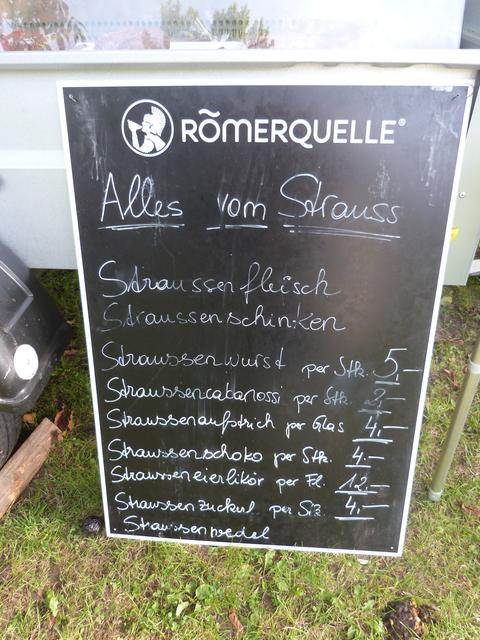 RÖMERQUELLE®
Alles vom Strauss
Straussenfleisch
Straussenschinken
Straussenwurst per Stk. 5,-
Straussencabanossi per Stk. 3,-
Straussenaufstrich per Glas 4,-
Straussenschoko per Stk. 4.-
Strausseneierlikör per Fl. 12.-
Straussen per 4,-
Straussenwedel